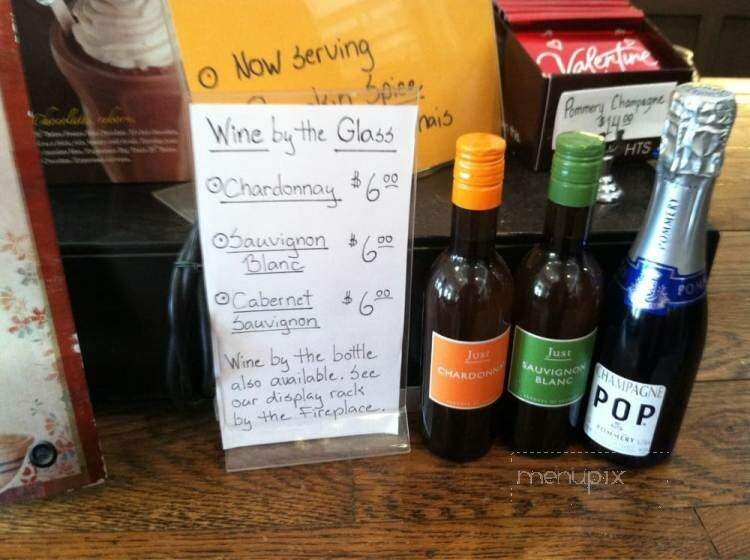 Now Serving
Spice
Valentine
Pommery Champagne
$14.00
HTS
Wine by the Glass
Chardonnay $6.00
Sauvignon $6.00
Blanc
Cabernet $6.00
Sauvignon
Wine by the bottle
also available. See
our display rack
by the Fireplace.
Just
CHARDONNAY
Just
SAUVIGNON
BLANC
POMMERY
CHAMPAGNE
POP
POMMERY
menupix